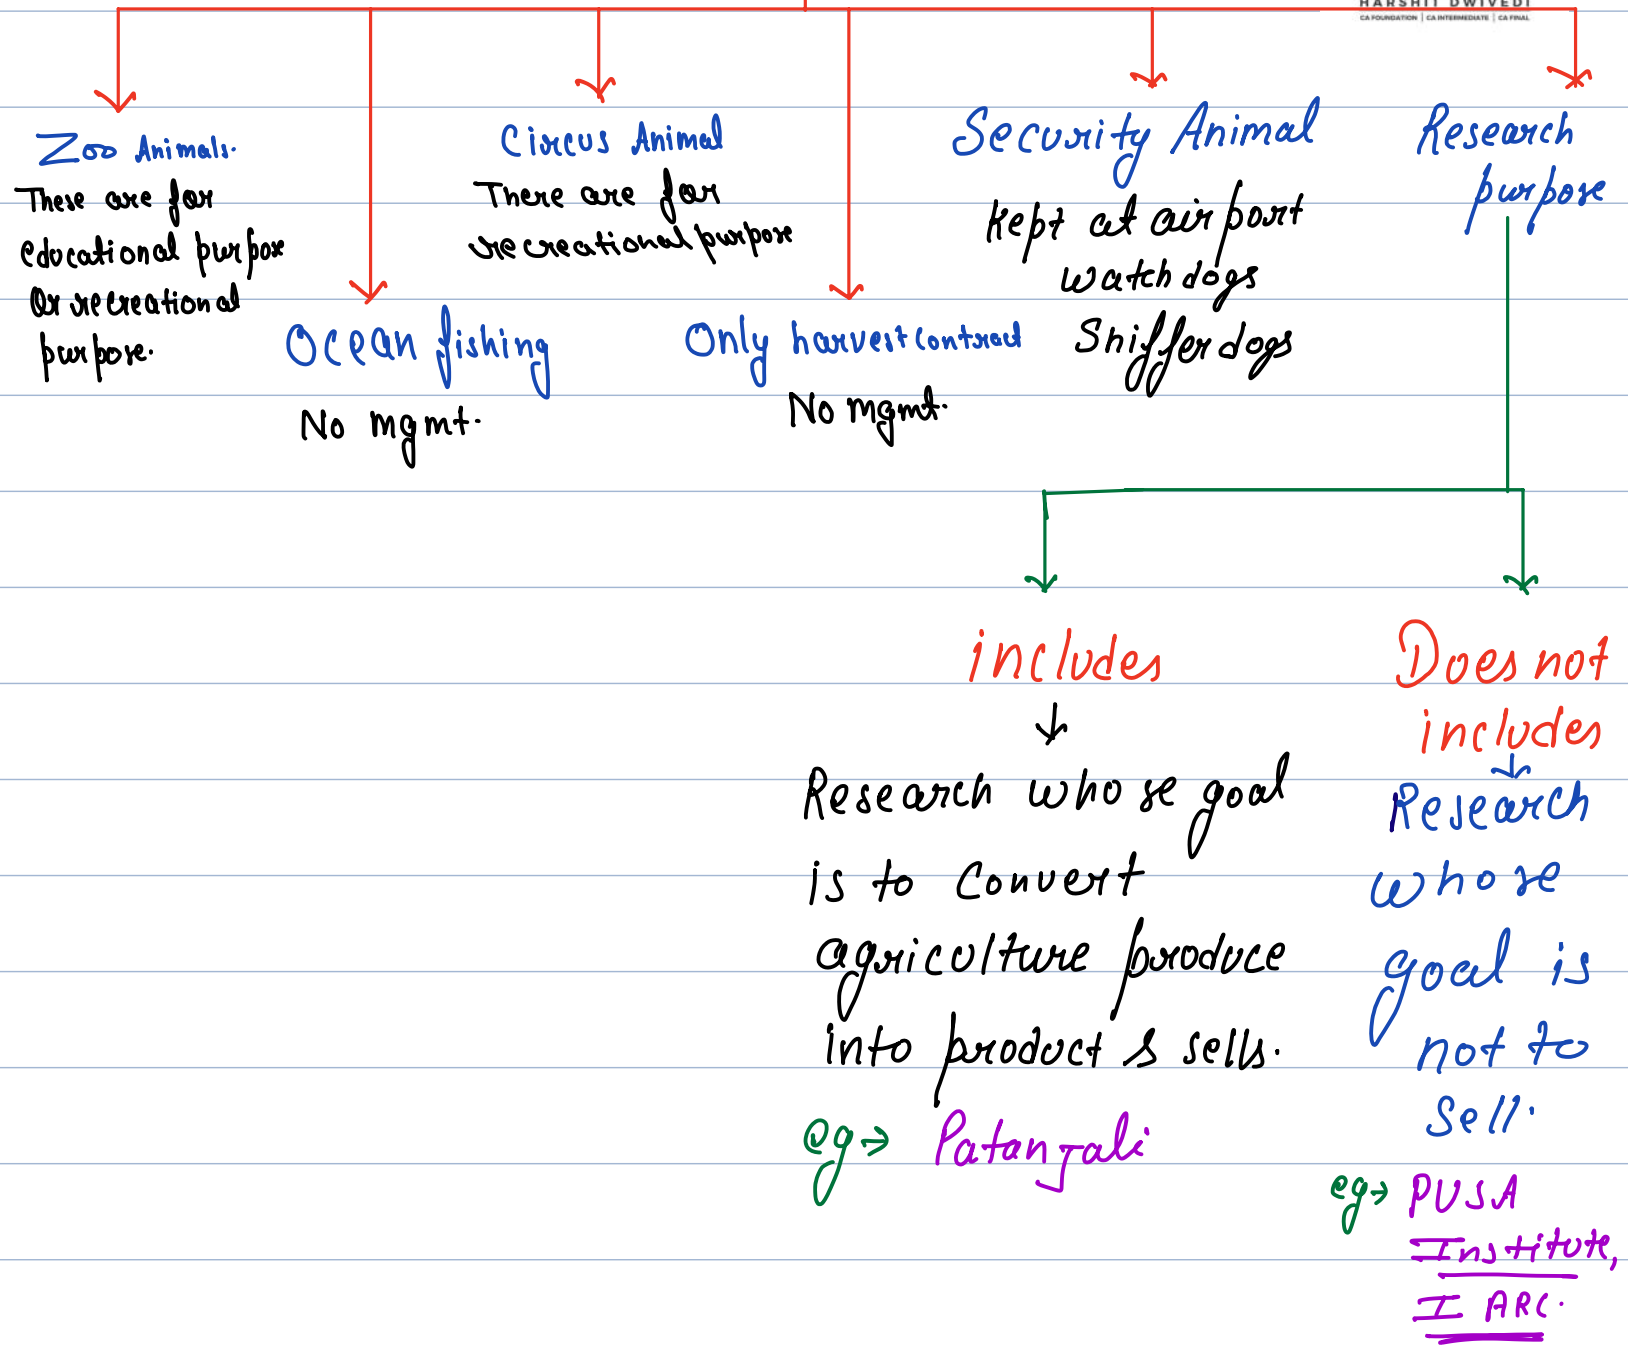 HARSHIT DWIVEDI
CA FOUNDATION | CA INTERMEDIATE | CA FINAL
Zoo Animals.
These are for
educational purpose
Or recreational
purpose.
Ocean fishing
No mgmt.
Circus Animal
There are for
recreational purpose
Only harvest contract
No mgmt.
Security Animal
Kept at airport
watch dogs
Sniffer dogs
Research
purpose
includes
↓
Research whose goal
is to convert
agriculture produce
into product & sells.
eg→ Patanjali
Does not
includes
↓
Research
whose
goal is
not to
sell.
eg→ PUSA
Institute,
I ARC.